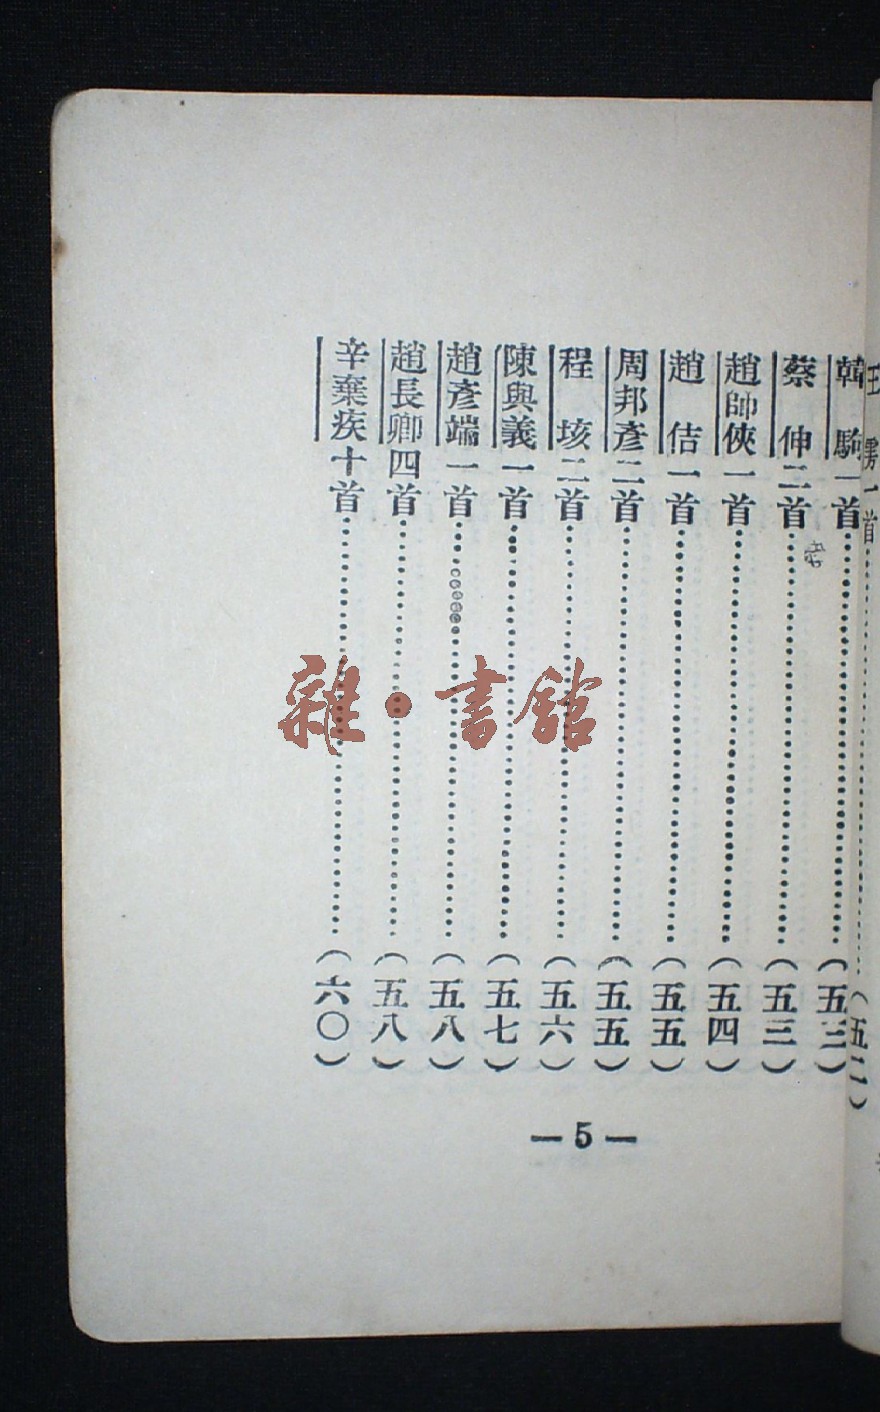 王雱一首……（五二）
韓駒一首……（五三）
蔡伸二首……（五三）
趙帥俠一首……（五四）
趙佶一首……（五五）
周邦彥二首……（五五）
程垓二首……（五六）
陳與義一首……（五七）
趙彥端一首……（五八）
趙長卿四首……（五八）
辛棄疾十首……（六〇）
— 5 —
雜·書館